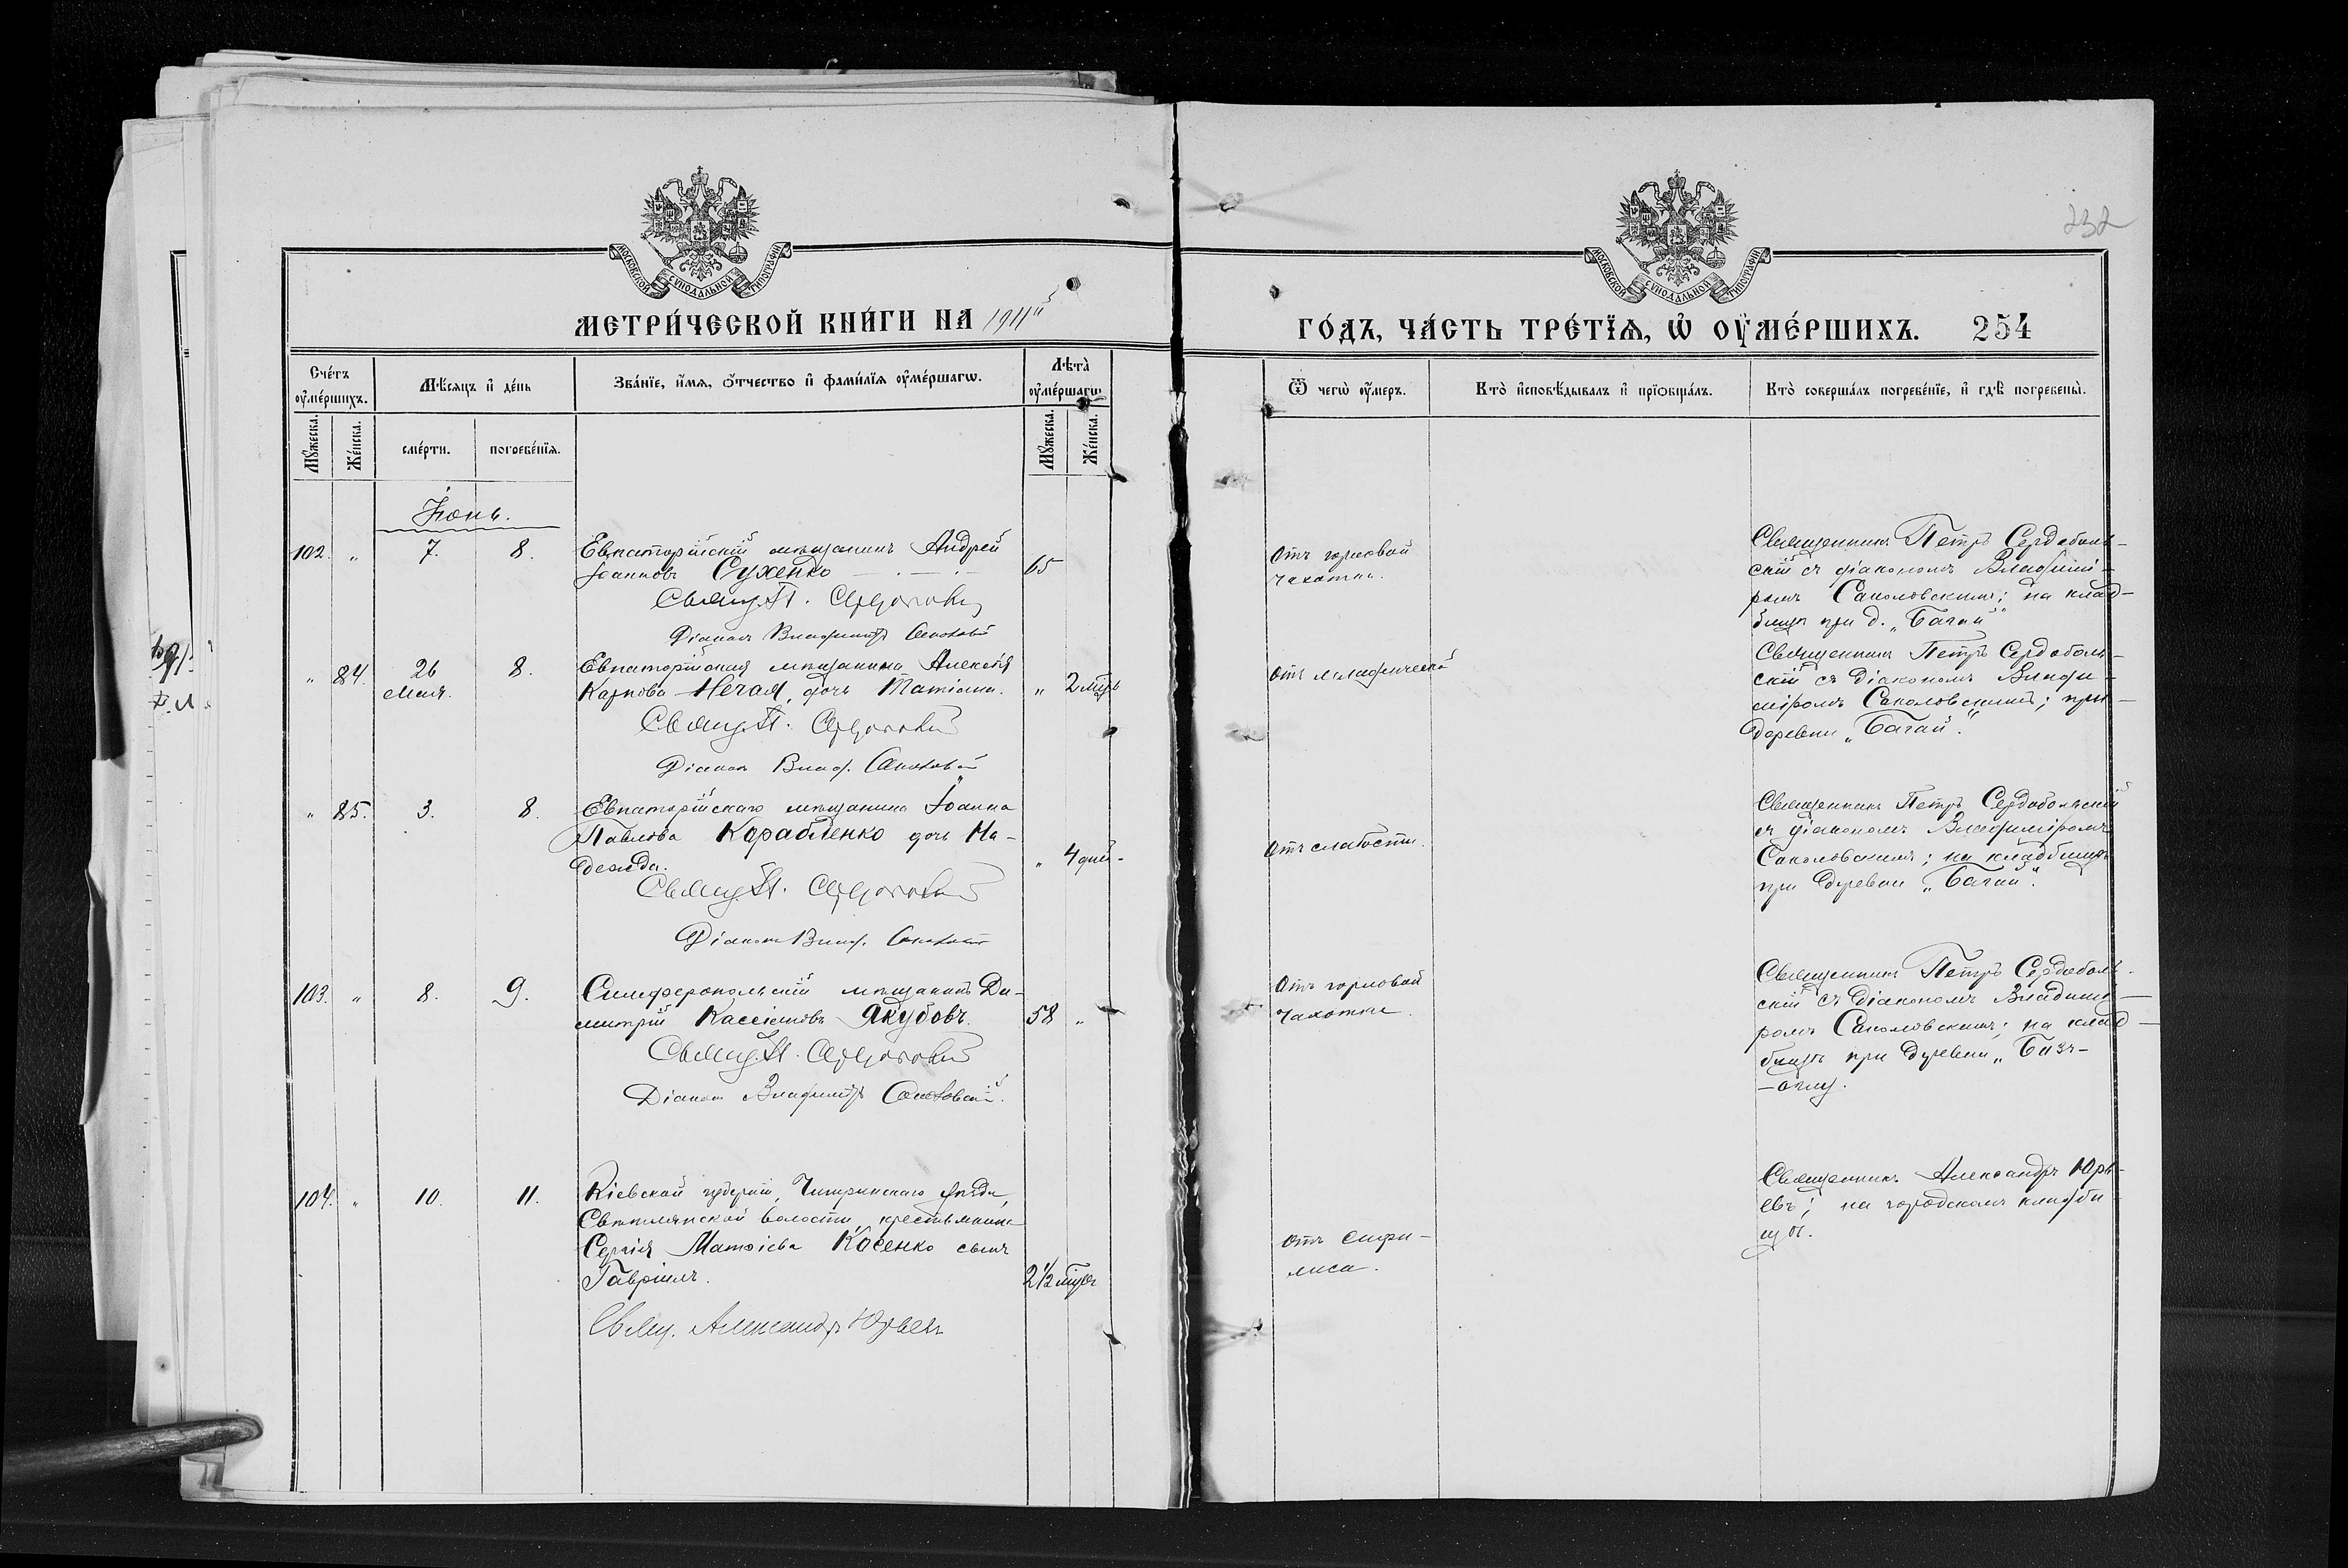 232
МОСКОВСКОЙ СѴНОДАЛЬНОЙ ТИПОГРАФІИ
МОСКОВСКОЙ СѴНОДАЛЬНОЙ ТИПОГРАФІИ
МЕТРИ́ЧЕСКОЙ КНИ́ГИ НА 1911й
ГО́ДЪ, ЧА́СТЬ ТРЕ́ТЇѦ, Ѡ҆ ОУ҆МЕ́РШИХЪ. 254
Сче́тъ оу҆ме́ршихъ.
Мѣ́сяцъ и҆ де́нь
Зва́нїе, и҆́мѧ, ѻ҆́тчество и҆ фами́лїѧ оу҆ме́ршагѡ.
Лѣта̀ оу҆ме́ршагѡ.
Ѿ чегѡ̀ оу҆́меръ.
Кто̀ и҆сповѣ́дывалъ и҆ прїѡбща́лъ.
Кто̀ соверша́лъ погребе́нїе, и҆ гдѣ̀ погребены̀.
Мꙋ́жеска.
Же́нска.
сме́рти.
погребе́нїѧ.
Мꙋ́жеска.
Же́нска.
Іюнь.
102. " 7. 8. Евпаторійскій мѣщанинъ Андрей
Іоанновъ Сухенко 65
Свящ. П. Сердобольскій
Діаконъ Владиміръ Соколовскій
Отъ горловой
чахотки.
Священникъ Петръ Сердоболь-
скій съ діакономъ Владимі-
ромъ Соколовскимъ; на клад-
бищѣ при д. „Багай"
" 84. 26 8. Евпаторійскаго мѣщанина Алексѣя
Мая. Карпова Нечая, дочь Татіана. " 2 мѣс.
Свящ. П. Сердобольскій
Діаконъ Влад. Соколовскій
Отъ младенческой
Священникъ Петръ Сердоболь-
скій съ діакономъ Влади-
міромъ Соколовскимъ; при
деревни „Багай".
" 85. 3. 8. Евпаторійскаго мѣщанина Іоанна
Павлова Корабленко дочь На-
дежда. " 4 дней.
Свящ. П. Сердобольскій
Діаконъ Влад. Соколовскій
Отъ слабости.
Священникъ Петръ Сердобольскій
съ діакономъ Владиміромъ
Соколовскимъ; на кладбищѣ
при деревни „Багай".
103. " 8. 9. Симферопольскій мѣщанинъ Ди-
митрій Кассіановъ Якубовъ. 58 "
Свящ. П. Сердобольскій
Діаконъ Владиміръ Соколовскій.
Отъ горловой
чахотки.
Священникъ Петръ Сердоболь-
скій съ діакономъ Владими-
ромъ Соколовскимъ; на клад-
бищѣ при деревни „Бузъ-
-оглу.
104. " 10. 11. Кіевской губерніи, Чигринскаго уѣзда,
волости, крестьянина
Сергія Матѳіева Косенко сынъ
Гавріилъ. 2½ мѣс.
Свящ. Александръ Юрьевъ
Отъ сифи-
лиса.
Священникъ Александръ Юрь-
евъ; на городскомъ кладби-
щѣ.